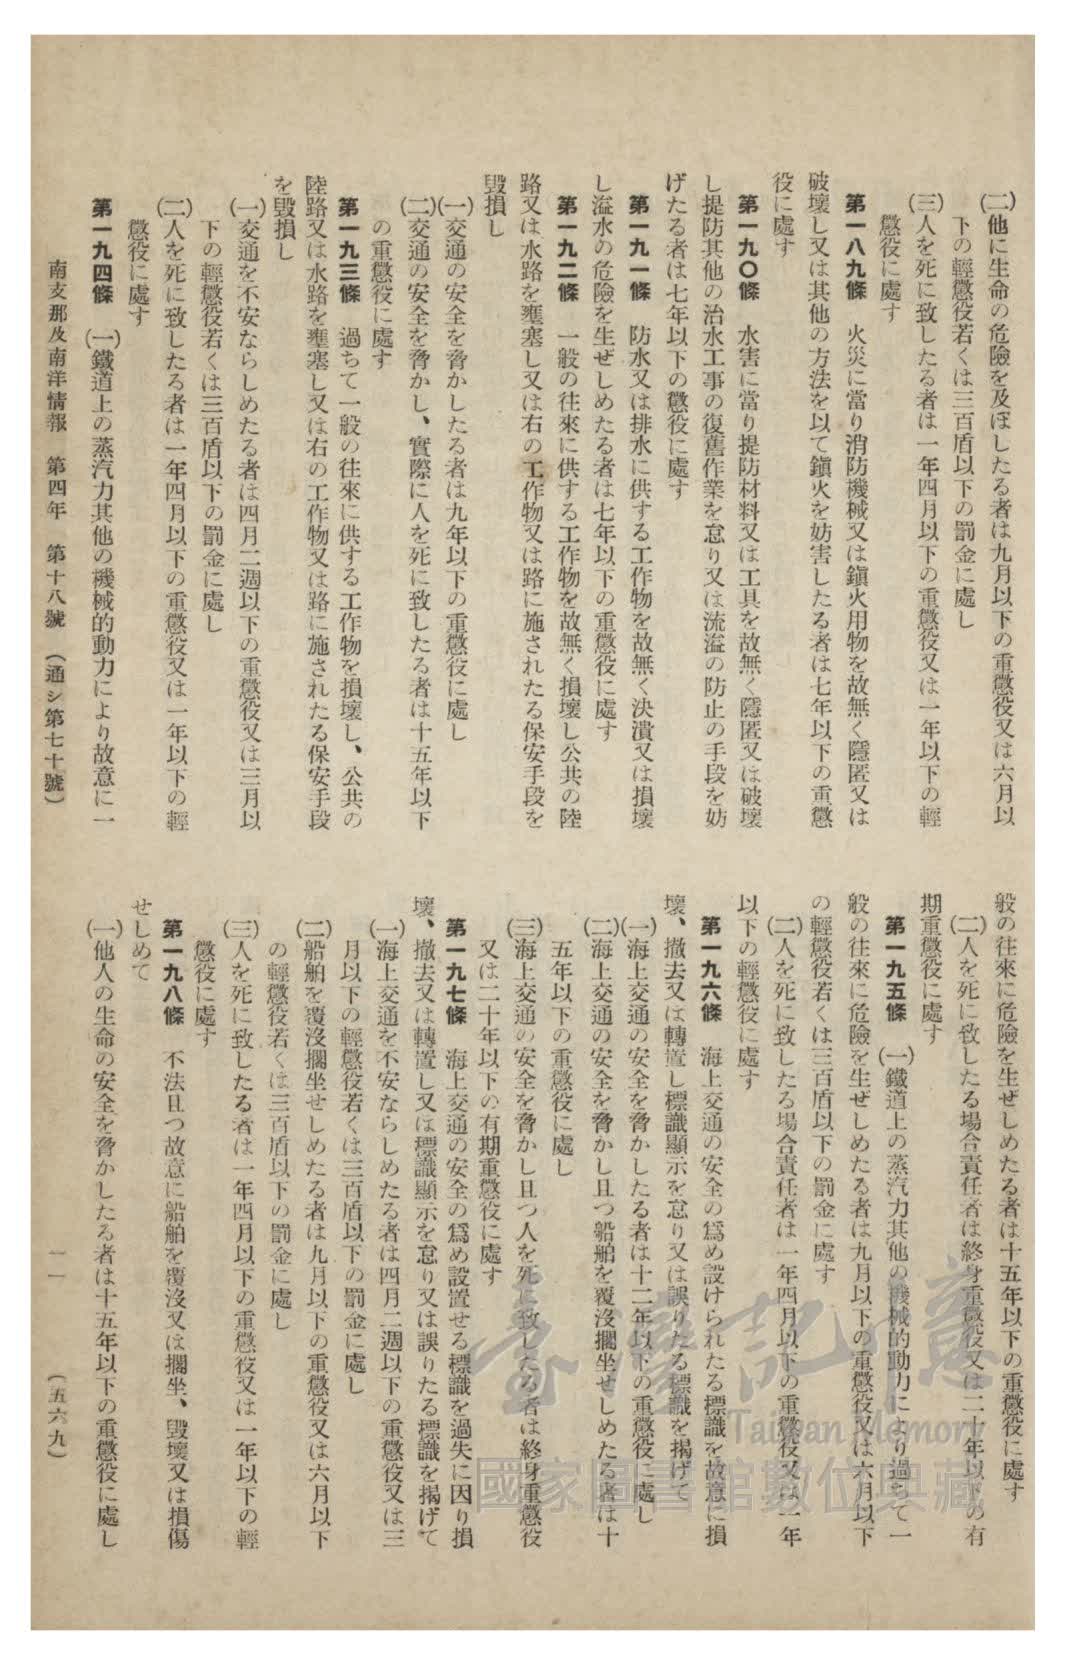 (二)他に生命の危險を及ぼしたる者は九月以下の重懲役又は六月以
下の輕懲役若くは三百盾以下の罰金に處し
(三)人を死に致したる者は一年四月以下の重懲役又は一年以下の輕
懲役に處す
第一八九條 火災に當り消防機械又は鎭火用物を故無く隱匿又は
破壞し又は其他の方法を以て鎭火を妨害したる者は七年以下の重懲
役に處す
第一九〇條 水害に當り提防材料又は工具を故無く隱匿又は破壞
し提防其他の治水工事の復舊作業を怠り又は流溢の防止の手段を妨
げたる者は七年以下の懲役に處す
第一九一條 防水又は排水に供する工作物を故無く決潰又は損壞
し溢水の危險を生ぜしめたる者は七年以下の重懲役に處す
第一九二條 一般の往來に供する工作物を故無く損壞し公共の陸
路又は水路を壅塞し又は右の工作物又は路に施されたる保安手段を
毀損し
(一)交通の安全を脅かしたる者は九年以下の重懲役に處し
(二)交通の安全を脅かし、實際に人を死に致したる者は十五年以下
の重懲役に處す
第一九三條 過ちて一般の往來に供する工作物を損壞し、公共の
陸路又は水路を壅塞し又は右の工作物又は路に施されたる保安手段
を毀損し
(一)交通を不安ならしめたる者は四月二週以下の重懲役又は三月以
下の輕懲役若くは三百盾以下の罰金に處し
(二)人を死に致したる者は一年四月以下の重懲役又は一年以下の輕
懲役に處す
第一九四條 (一)鐵道上の蒸汽力其他の機械的動力により故意に一
南支那及南洋情報 第四年 第十八號 (通シ第七十號)
般の往來に危險を生ぜしめたる者は十五年以下の重懲役に處す
(二)人を死に致したる場合責任者は終身重懲役又は二十年以下の有
期重懲役に處す
第一九五條 (一)鐵道上の蒸汽力其他の機械的動力により過ちて一
般の往來に危險を生ぜしめたる者は九月以下の重懲役又は六月以下
の輕懲役若くは三百盾以下の罰金に處す
(二)人を死に致したる場合責任者は一年四月以下の重懲役又は一年
以下の輕懲役に處す
第一九六條 海上交通の安全の爲め設けられたる標識を故意に損
壞、撤去又は轉置し標識顯示を怠り又は誤りたる標識を揭げて
(一)海上交通の安全を脅かしたる者は十二年以下の重懲役に處し
(二)海上交通の安全を脅かし且つ船舶を覆沒擱坐せしめたる者は十
五年以下の重懲役に處し
(三)海上交通の安全を脅かし且つ人を死に致したる者は終身重懲役
又は二十年以下の有期重懲役に處す
第一九七條 海上交通の安全の爲め設置せる標識を過失に因り損
壞、撤去又は轉置し又は標識顯示を怠り又は誤りたる標識を揭げて
(一)海上交通を不安ならしめたる者は四月二週以下の重懲役又は三
月以下の輕懲役若くは三百盾以下の罰金に處し
(二)船舶を覆沒擱坐せしめたる者は九月以下の重懲役又は六月以下
の輕懲役若くは三百盾以下の罰金に處し
(三)人を死に致したる者は一年四月以下の重懲役又は一年以下の輕
懲役に處す
第一九八條 不法且つ故意に船舶を覆沒又は擱坐、毀壞又は損傷
せしめて
(一)他人の生命の安全を脅かしたる者は十五年以下の重懲役に處し
一一 (五六九)
臺灣記憶
Taiwan Memory
國家圖書館數位典藏